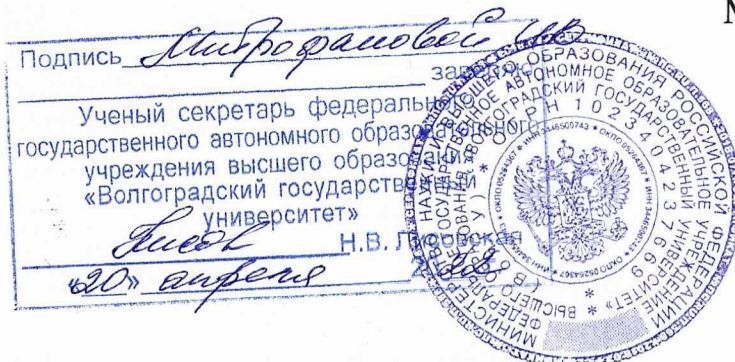 Подпись Митрофановой ИВ
заверяю
Ученый секретарь федерального
государственного автономного образовательного
учреждения высшего образования
«Волгоградский государственный
университет»
Н.В. Лисовская
«20» апреля
МИНИСТЕРСТВО НАУКИ И ВЫСШЕГО ОБРАЗОВАНИЯ РОССИЙСКОЙ ФЕДЕРАЦИИ
ФЕДЕРАЛЬНОЕ ГОСУДАРСТВЕННОЕ АВТОНОМНОЕ ОБРАЗОВАТЕЛЬНОЕ УЧРЕЖДЕНИЕ
ВЫСШЕГО ОБРАЗОВАНИЯ «ВОЛГОГРАДСКИЙ ГОСУДАРСТВЕННЫЙ УНИВЕРСИТЕТ»
* ОГРН 1023404237669 *